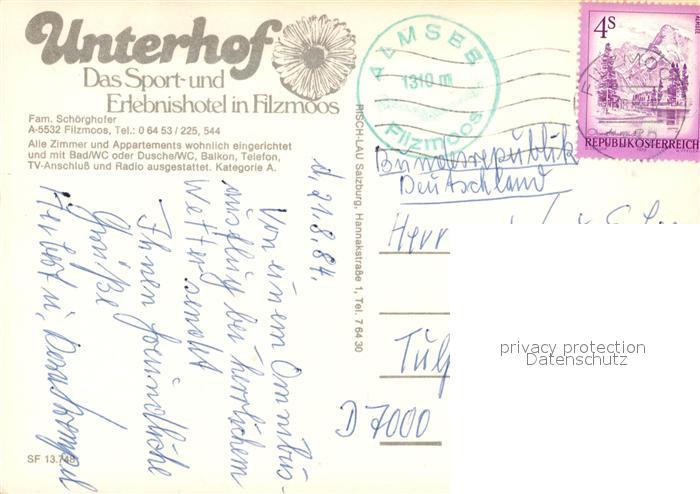 Unterhof
Das Sport- und
Erlebnishotel in Filzmoos
Fam. Schörghofer
A-5532 Filzmoos, Tel.: 0 64 53 / 225, 544
Alle Zimmer und Appartements wohnlich eingerichtet
und mit Bad/WC oder Dusche/WC, Balkon, Telefon,
TV-Anschluß und Radio ausgestattet. Kategorie A.
d. 21.8.84.
Von einem Omnibus-
ausflug bei herrlichem
Wetter sendet
Ihnen freundliche
Grüße
Herbert u.
SF 13.748
RISCH-LAU Salzburg, Hannakstraße 1, Tel. 7 64 30
ALMSEE
1310 m
Filzmoos
4 S
ALMSEE
FILZMOOS
REPUBLIK ÖSTERREICH
Bundesrepublik
Deutschland
Herr
D 7000
privacy protection
Datenschutz